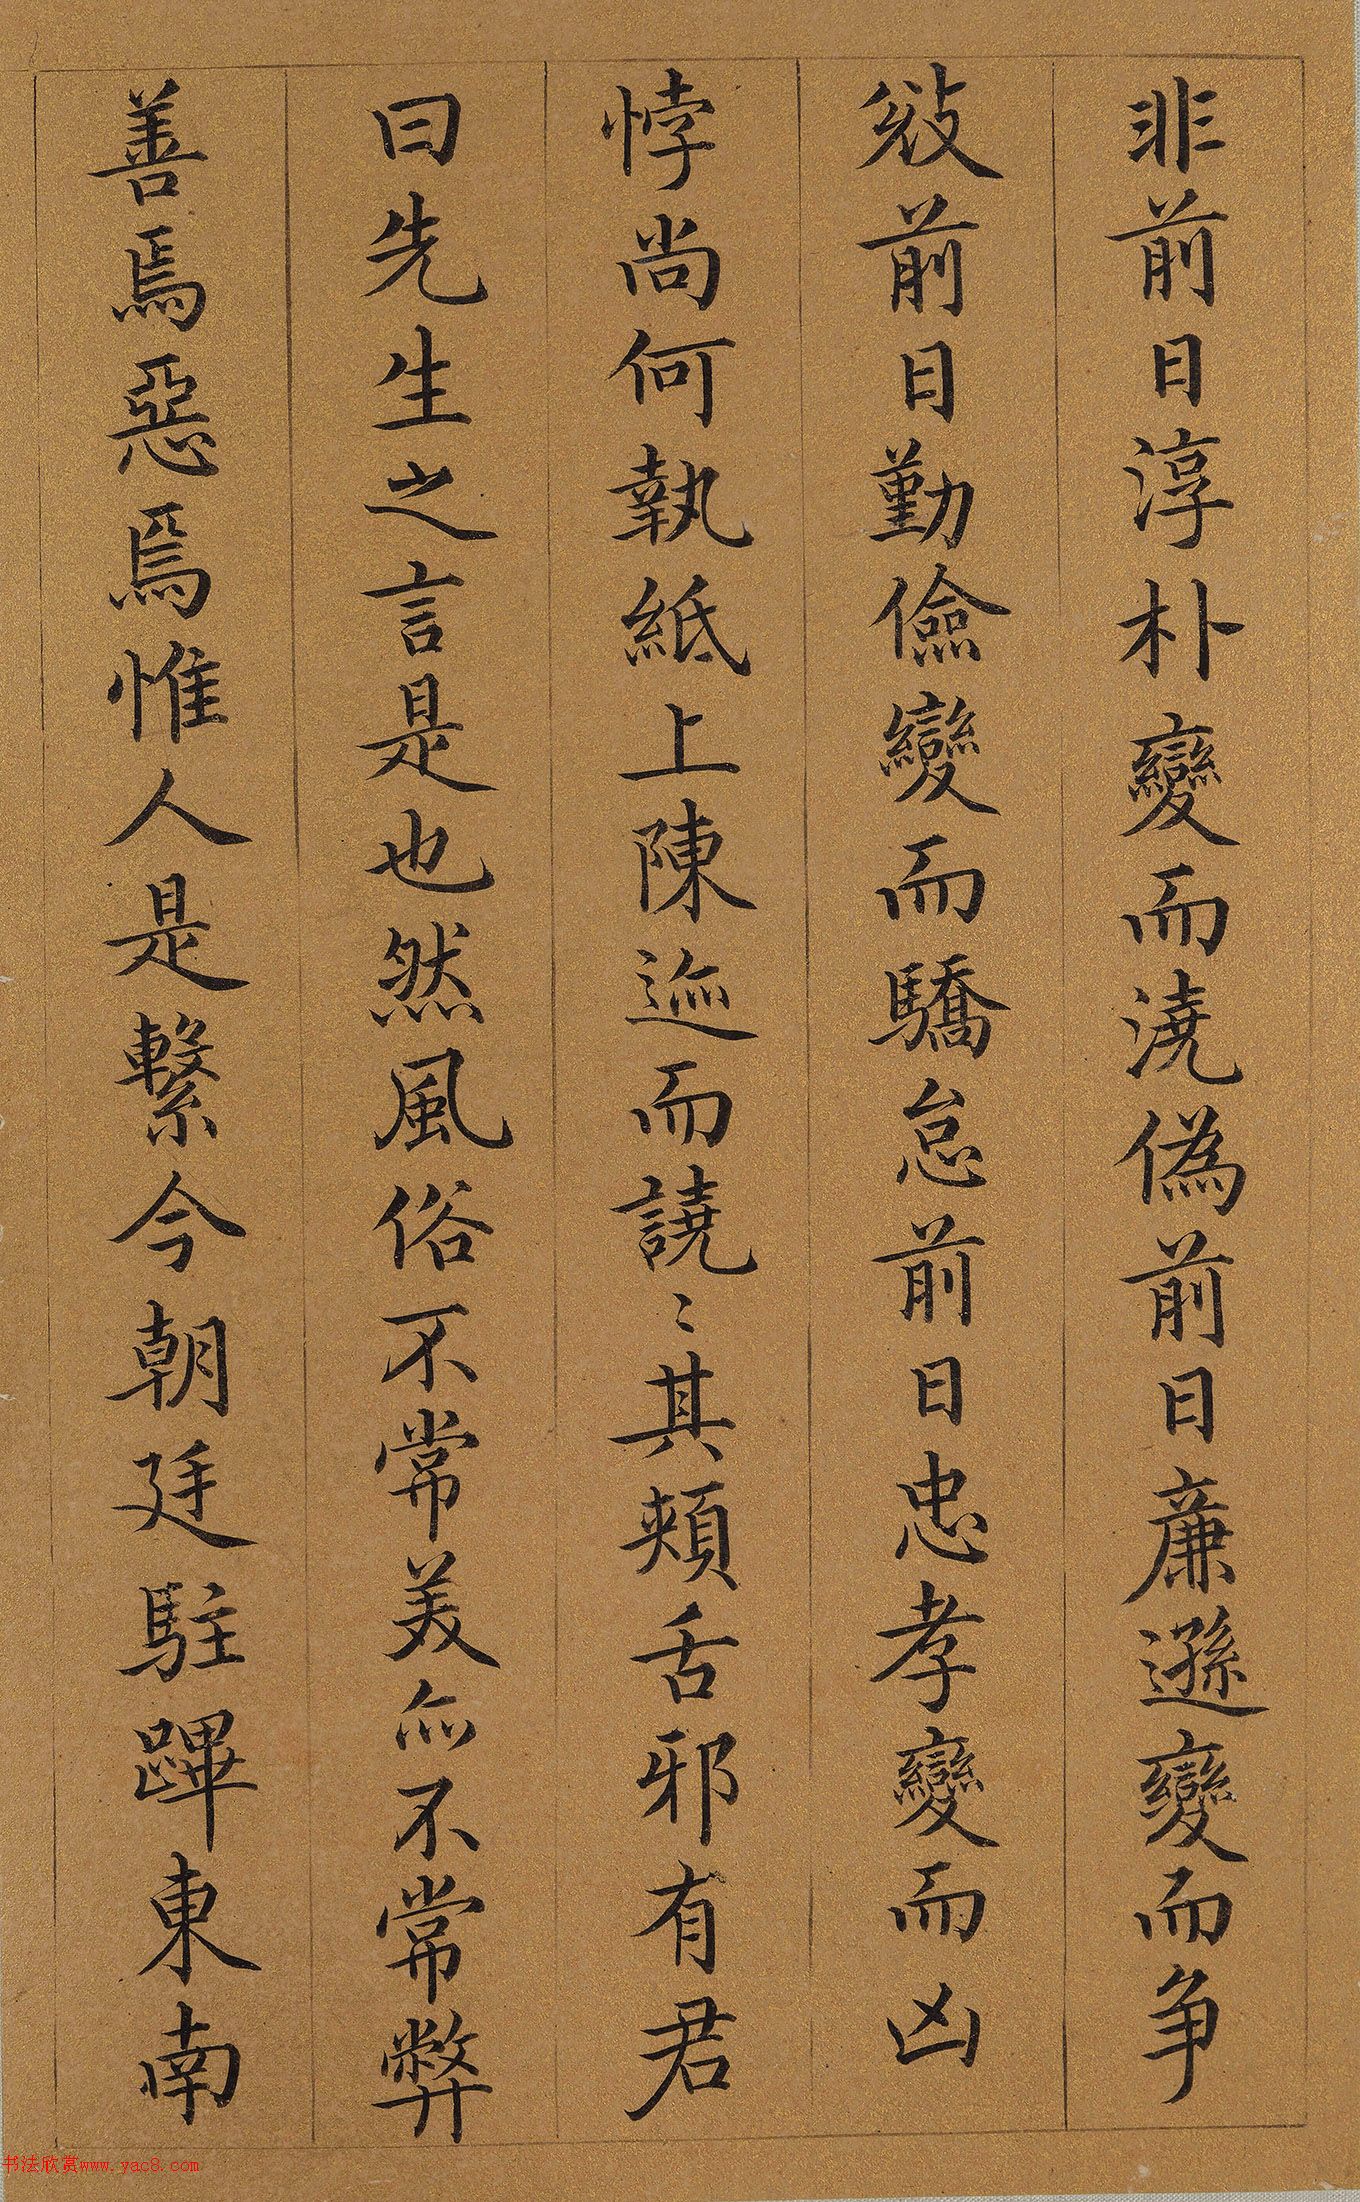 非前日淳朴變而澆偽前日廉遜變而争
敚前日勤儉變而驕怠前日忠孝變而凶
悖尚何執紙上陳迹而譊〻其頰舌邪有君
曰先生之言是也然風俗不常美亦不常弊
善焉惡焉惟人是繫今朝廷駐蹕東南
书法欣赏www.yac8.com